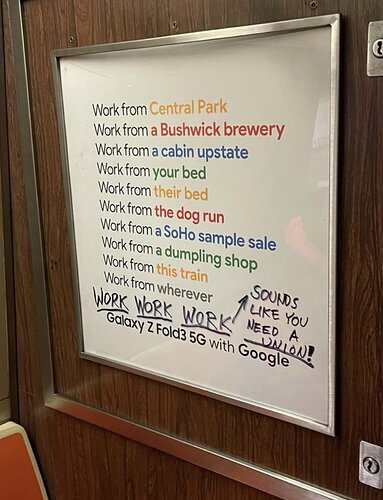 Work from Central Park
Work from a Bushwick brewery
Work from a cabin upstate
Work from your bed
Work from their bed
Work from the dog run
Work from a SoHo sample sale
Work from a dumpling shop
Work from this train
Work from wherever
WORK WORK WORK
SOUNDS
LIKE YOU
NEED A
UNION!
Galaxy Z Fold3 5G with Google